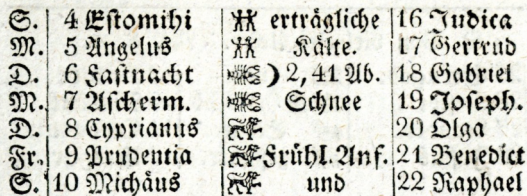 S. 4 Estomihi erträgliche 16 Judica
M. 5 Angelus Kälte. 17 Gertrud
D. 6 Fastnacht ☽ 2, 41 Ab. 18 Gabriel
M. 7 Ascherm. Schnee 19 Joseph.
D. 8 Cyprianus 20 Olga
Fr. 9 Prudentia Frühl. Anf. 21 Benedict
S. 10 Michäus und 22 Raphael